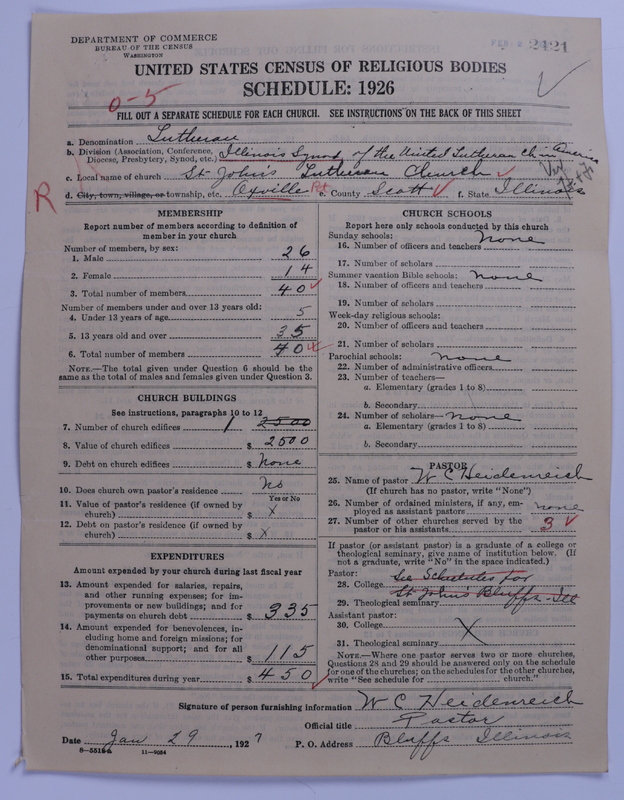 DEPARTMENT OF COMMERCE
BUREAU OF THE CENSUS
WASHINGTON
FEB -2 2421
UNITED STATES CENSUS OF RELIGIOUS BODIES
SCHEDULE: 1926
0-5
FILL OUT A SEPARATE SCHEDULE FOR EACH CHURCH. SEE INSTRUCTIONS ON THE BACK OF THIS SHEET
a. Denomination Lutheran
b. Division (Association, Conference, Diocese, Presbytery, Synod, etc.) Illinois Synod of the United Lutheran Ch. in America
c. Local name of church St John's Lutheran Church
R
d. City, town, village, or township, etc. Oxville e. County Scott f. State Illinois
MEMBERSHIP
Report number of members according to definition of
member in your church
Number of members, by sex:
1. Male 26
2. Female 14
3. Total number of members 40
Number of members under and over 13 years old:
4. Under 13 years of age 5
5. 13 years old and over 35
6. Total number of members 40
NOTE.—The total given under Question 6 should be the
same as the total of males and females given under Question 3.
CHURCH BUILDINGS
See instructions, paragraphs 10 to 12
7. Number of church edifices 1 2500
8. Value of church edifices $ 2500
9. Debt on church edifices $ None
10. Does church own pastor's residence No
Yes or No
11. Value of pastor's residence (if owned by
church) $ X
12. Debt on pastor's residence (if owned by
church) $ X
EXPENDITURES
Amount expended by your church during last fiscal year
13. Amount expended for salaries, repairs,
and other running expenses; for im-
provements or new buildings; and for
payments on church debt $ 335
14. Amount expended for benevolences, in-
cluding home and foreign missions; for
denominational support; and for all
other purposes $ 115
15. Total expenditures during year $ 450
CHURCH SCHOOLS
Report here only schools conducted by this church
Sunday schools: none
16. Number of officers and teachers
17. Number of scholars
Summer vacation Bible schools: none
18. Number of officers and teachers
19. Number of scholars
Week-day religious schools:
20. Number of officers and teachers
21. Number of scholars
Parochial schools: none
22. Number of administrative officers
23. Number of teachers—
a. Elementary (grades 1 to 8)
b. Secondary
24. Number of scholars— none
a. Elementary (grades 1 to 8)
b. Secondary
PASTOR
25. Name of pastor W C Heidenreich
(If church has no pastor, write "None")
26. Number of ordained ministers, if any, em-
ployed as assistant pastors none
27. Number of other churches served by the
pastor or his assistants 3
If pastor (or assistant pastor) is a graduate of a college or
theological seminary, give name of institution below. (If
not a graduate, write "No" in the space indicated.)
Pastor: See Schedules for
28. College St John's Bluffs - Ill
29. Theological seminary
Assistant pastor:
30. College X
31. Theological seminary
NOTE.—Where one pastor serves two or more churches,
Questions 28 and 29 should be answered only on the schedule
for one of the churches; on the schedules for the other churches,
write "See schedule for church."
Signature of person furnishing information W C Heidenreich
Official title Pastor
Date Jan 29, 1927 P. O. Address Bluffs Illinois
8-5518a 11-9034